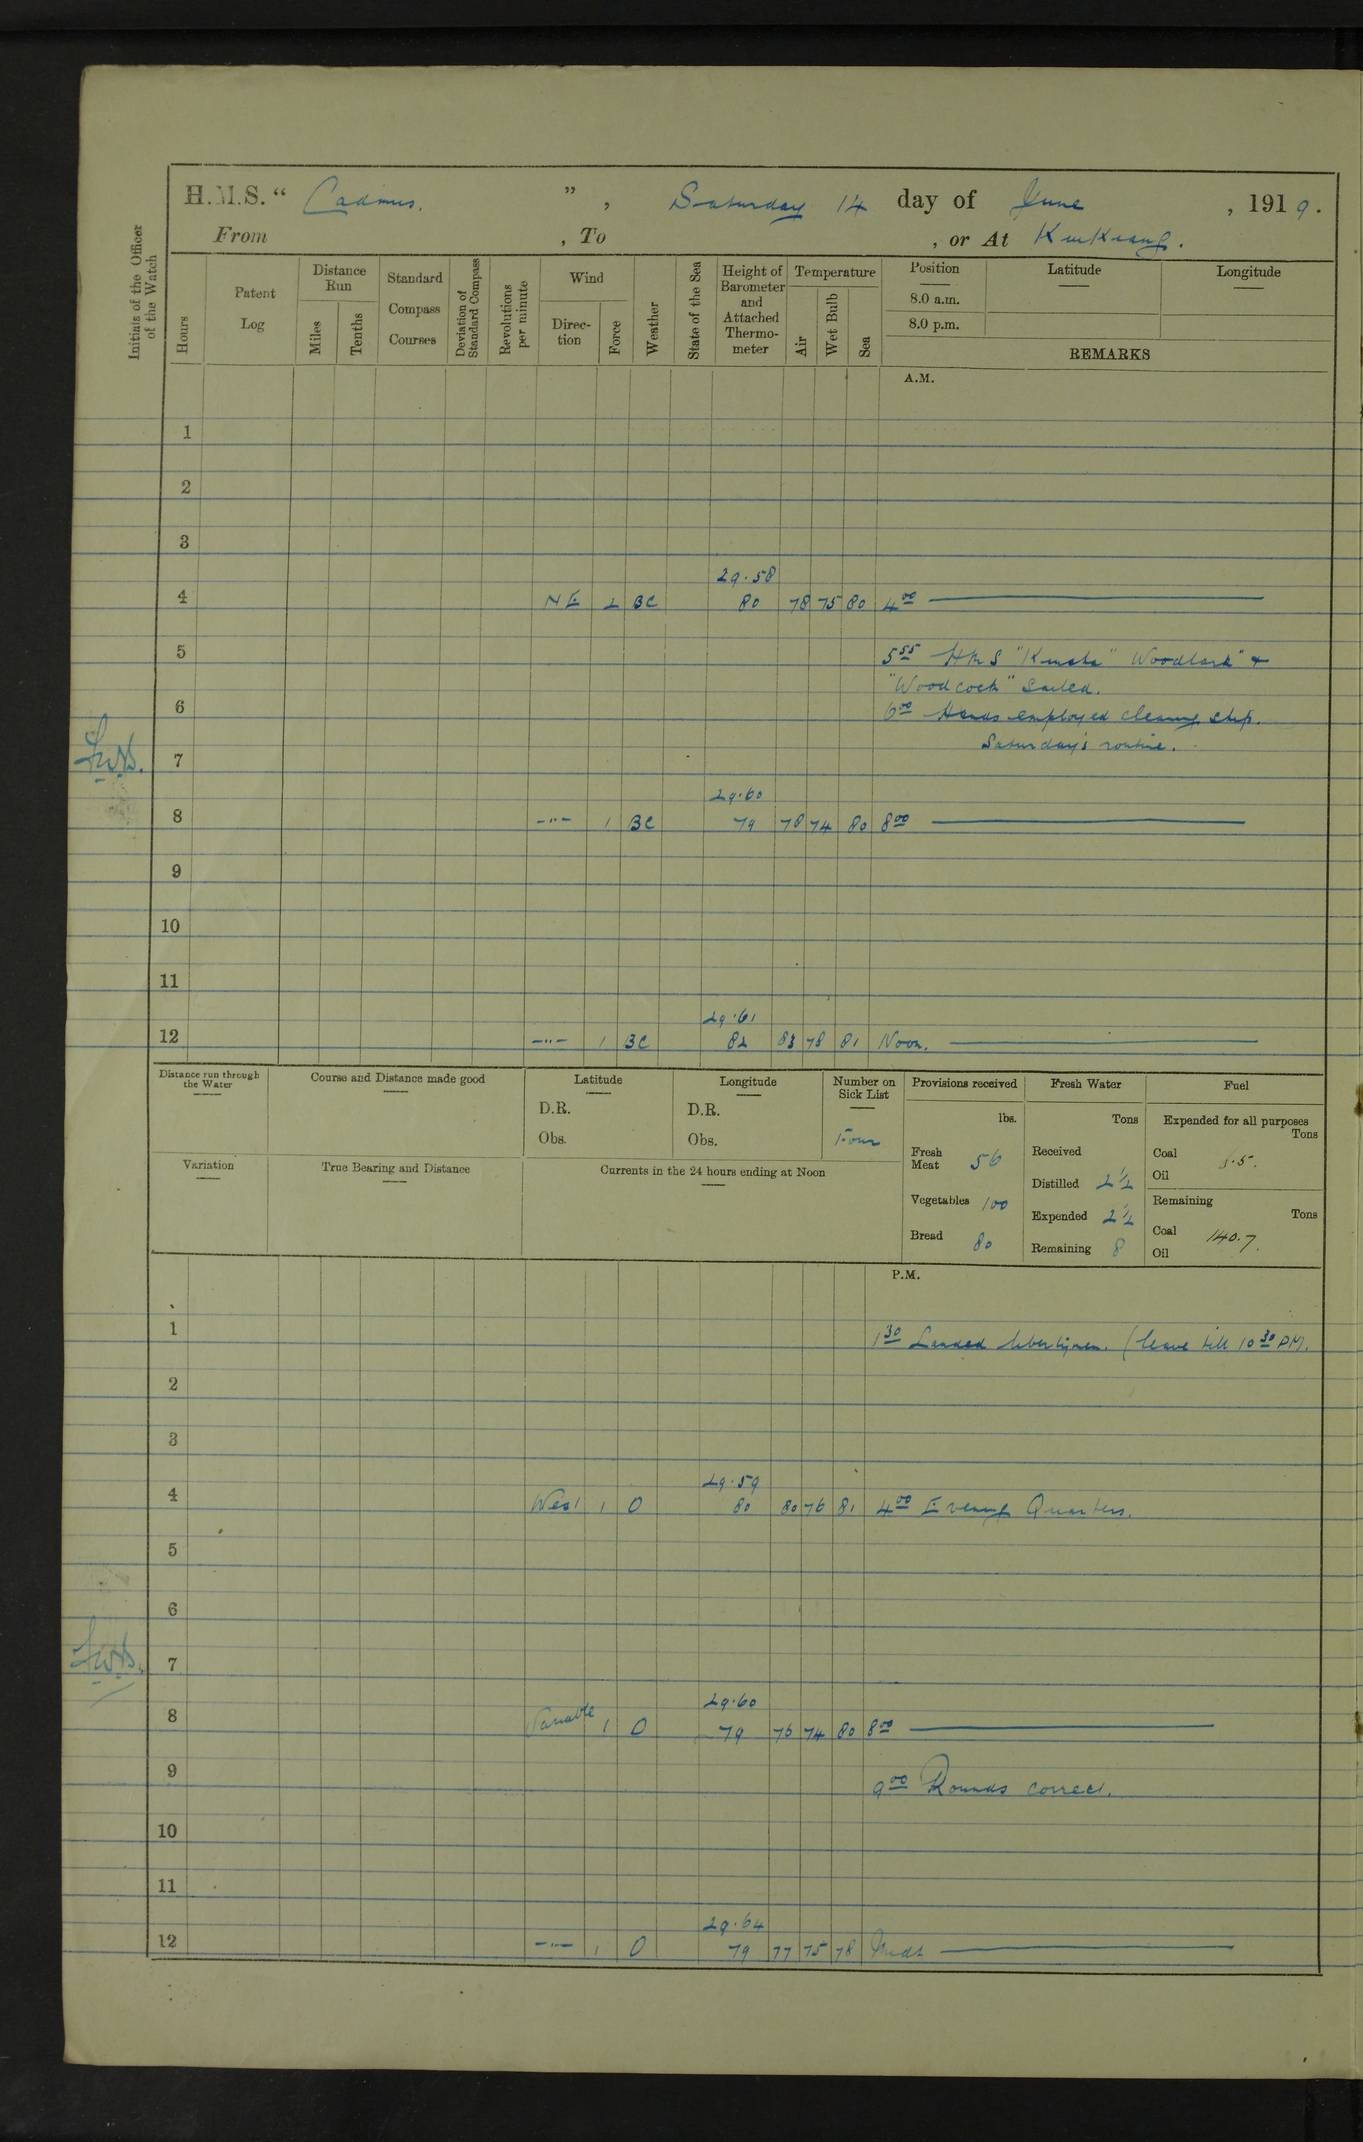 H.M.S. “ Cadmus. ”, Saturday 14 day of June, 1919.
From , To , or At KiuKiang.
Initials of the Officer of the Watch
Hours
Patent Log
Distance Run
Miles
Tenths
Standard Compass Courses
Deviation of Standard Compass
Revolutions per minute
Wind
Direction
Force
Weather
State of the Sea
Height of Barometer and Attached Thermometer
Temperature
Air
Wet Bulb
Sea
Position
8.0 a.m.
8.0 p.m.
Latitude
Longitude
REMARKS
A.M.
1
2
3
29.58
4 NE 2 BC 80 78 75 80 4 00
5 5 55 HMS "Kinsha" Woodlark" +
"Woodcock" Sailed.
6 6 00 Hands employed cleaning ship.
Saturday's routine.
7
29.60
8 -"- 1 BC 79 78 74 80 8 00
9
10
11
29.61
12 -"- 1 BC 82 83 78 81 Noon.
Distance run through the Water
Course and Distance made good
Latitude
D.R.
Obs.
Longitude
D.R.
Obs.
Number on Sick List
Four
Provisions received
lbs.
Fresh Meat 56
Vegetables 100
Bread 80
Fresh Water
Tons
Received
Distilled 2 1/2
Expended 2 1/2
Remaining 8
Fuel
Expended for all purposes
Tons
Coal
Oil
Remaining
Tons
Coal 140.7.
Oil
Variation
True Bearing and Distance
Currents in the 24 hours ending at Noon
P.M.
1 1 30 Landed libertymen. (leave till 10 30 PM.
2
3
29.59
4 West 1 O 80 80 76 81 4 00 Evening Quarters.
5
6
7
29.60
8 Variable 1 O 79 76 74 80 8 00
9 9 00 Rounds correct.
10
11
29.64
12 -"- 1 O 79 77 75 78 Midt